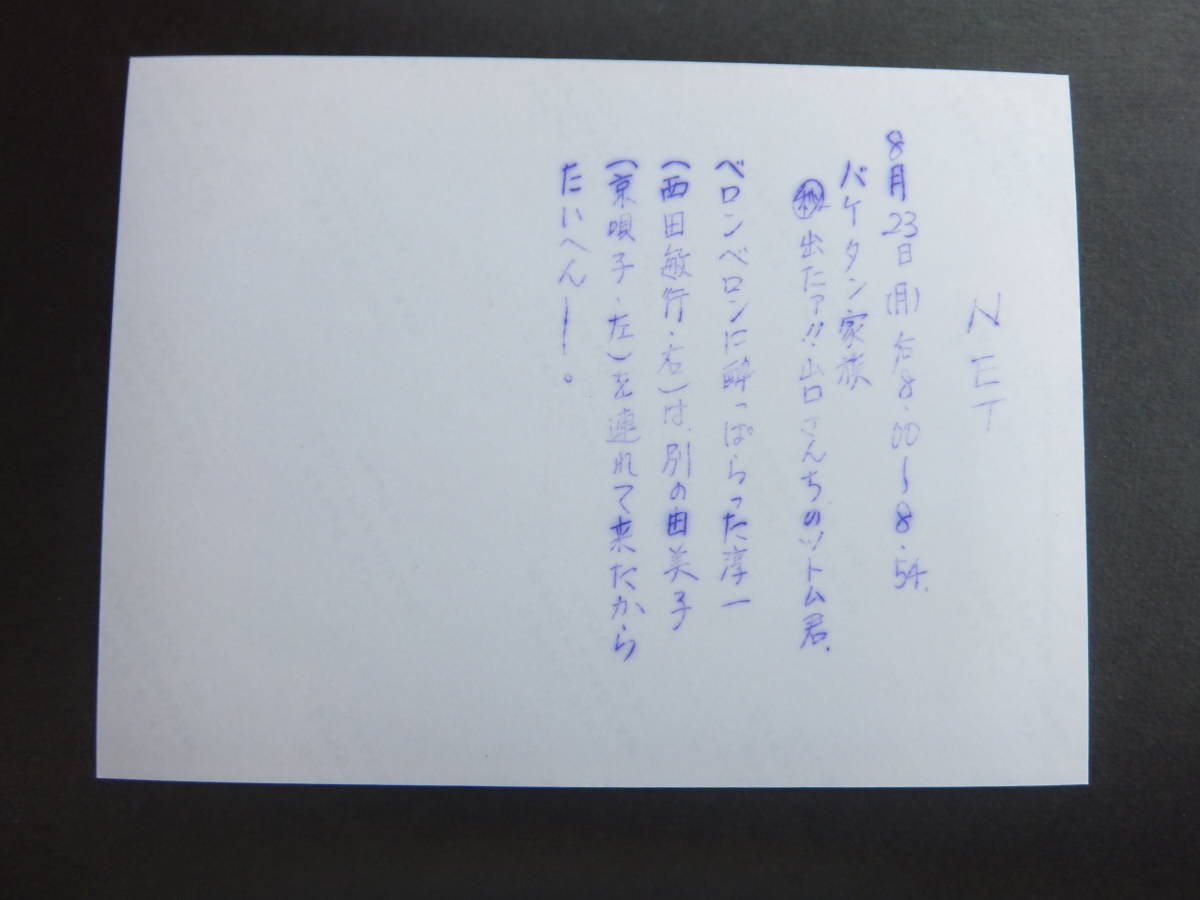 NET
8月23日(月)后8.00〜8.54.
バケタン家族
㊙出たァ!!山口さんちのツトム君.
ベロンベロンに酔っぱらった淳一
(西田敏行・右)は、別の由美子
(京唄子・左)を連れて来たから
たいへんー。